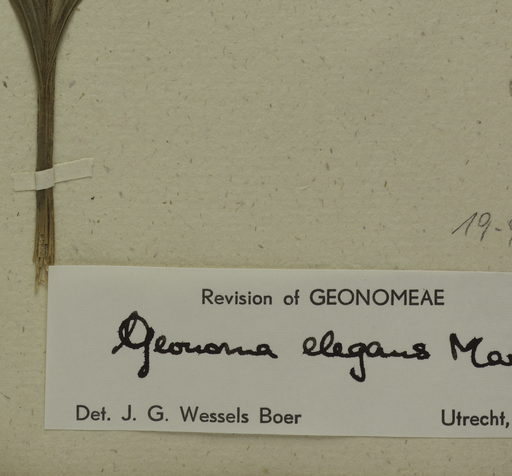 19-
Revision of GEONOMEAE
Geonoma elegans Mar
Det. J. G. Wessels Boer
Utrecht,